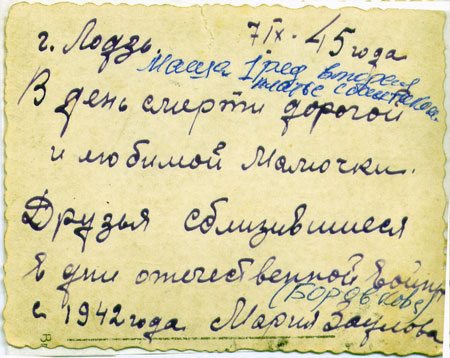 г. Лодзь. 7 IX - 45 года
Маша 1 ряд вторая
платье с бантиком.
В день смерти дорогой
и любимой Мамочки.
Друзья сблизившиеся
в дни отечественной войны
(Бордакова)
с 1942 года Мария Заулова